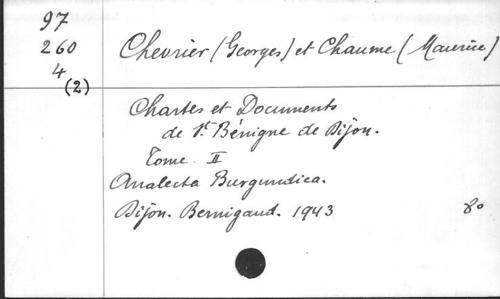 97
260
4
(2)
Chevrier (Georges) et Chaume (Maurice)
Chartes et Documents
de St. Bénigne de Dijon.
Tome II
Analecta Burgundica.
Dijon. Bernigaud. 1943 8o